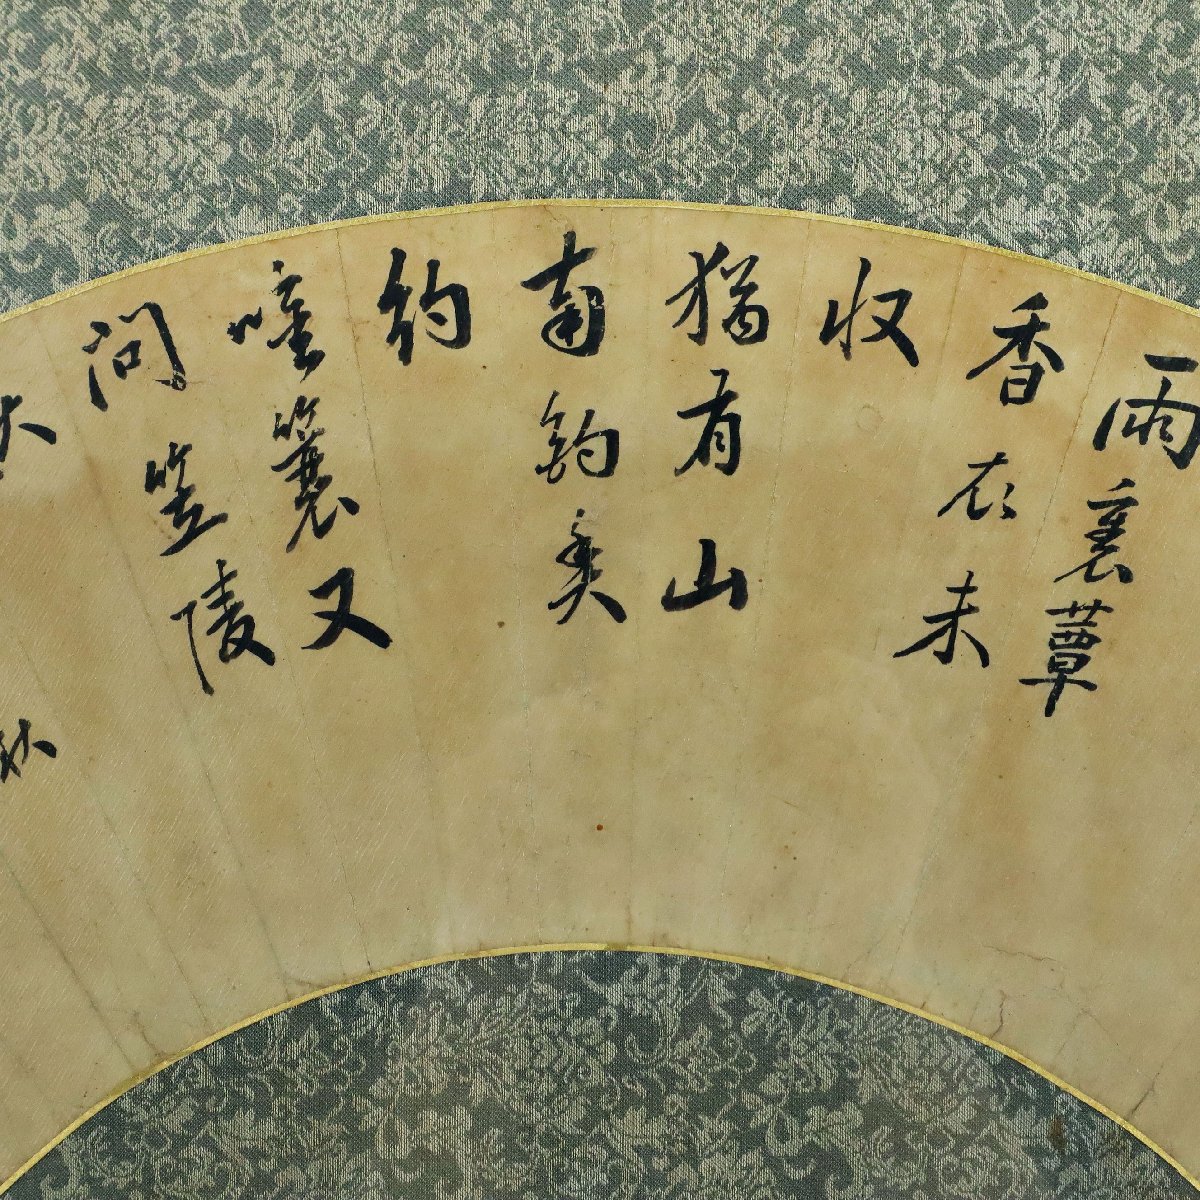 雨裛蕈
香衣未
収
猶有山
南釣叟
約
嘡簑又
問笠陵